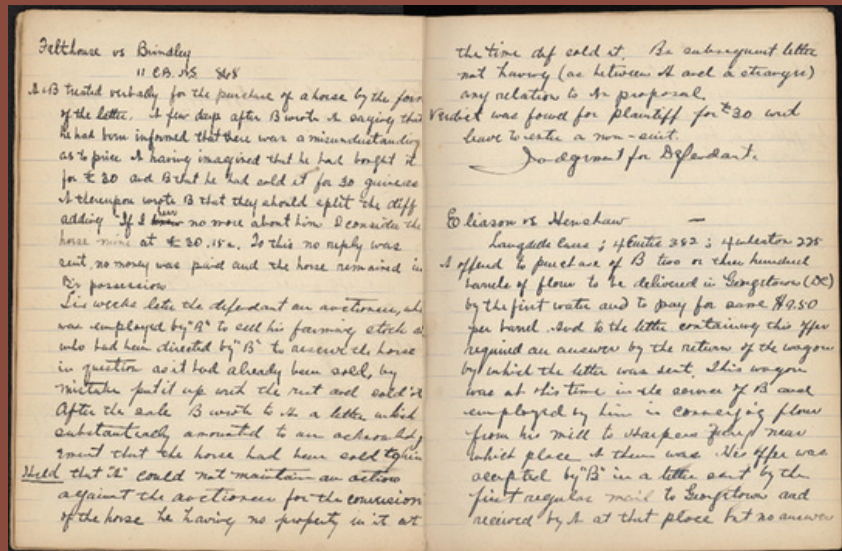 Felthouse vs Brindley
11 C.B. N.S. 868
A & B treated verbally for the purchase of a horse by the form
of the letter. A few days after B wrote A saying that
he had been informed that there was a misunderstanding
as to price A having imagined that he had bought it
for £30 and B that he had sold it for 30 guineas
A thereupon wrote B that they should split the diff
adding "If I hear no more about him I consider the
horse mine at £30.15s. To this no reply was
sent, no money was paid and the horse remained in
B's possession
Six weeks late the defendant an auctioneer, who
was employed by "B" to sell his farming stock
who had been directed by "B" to reserve the horse
in question as it had already been sold, by
mistake put it up with the rest and sold it
After the sale B wrote to A a letter which
substantially amounted to an acknowledg
ement that the horse had been sold to him
Held that "A" could not maintain an action
against the auctioneer for the conversion
of the horse he having no property in it at
the time def sold it. B's subsequent letter
not having (as between A and a stranger)
any relation to A's proposal.
Verdict was found for plaintiff for £30 with
leave to enter a non-suit.
Judgment for Defendant.
Eliason vs Henshaw
Langdell's Cases ; 4 Curtis 382 ; 4 Wheaton 225
A offered to purchase of B two or three hundred
barrels of flour to be delivered in Georgetown (DC)
by the first water and to pay for same $9.50
per barrel. And to the letter containing this offer
required an answer by the return of the wagon
by which the letter was sent. This wagon
was at this time in the service of B and
employed by him in conveying flour
from his mill to Harpers Ferry near
which place A then was. His offer was
accepted by "B" in a letter sent by the
first regular mail to Georgetown and
received by A at that place but no answer